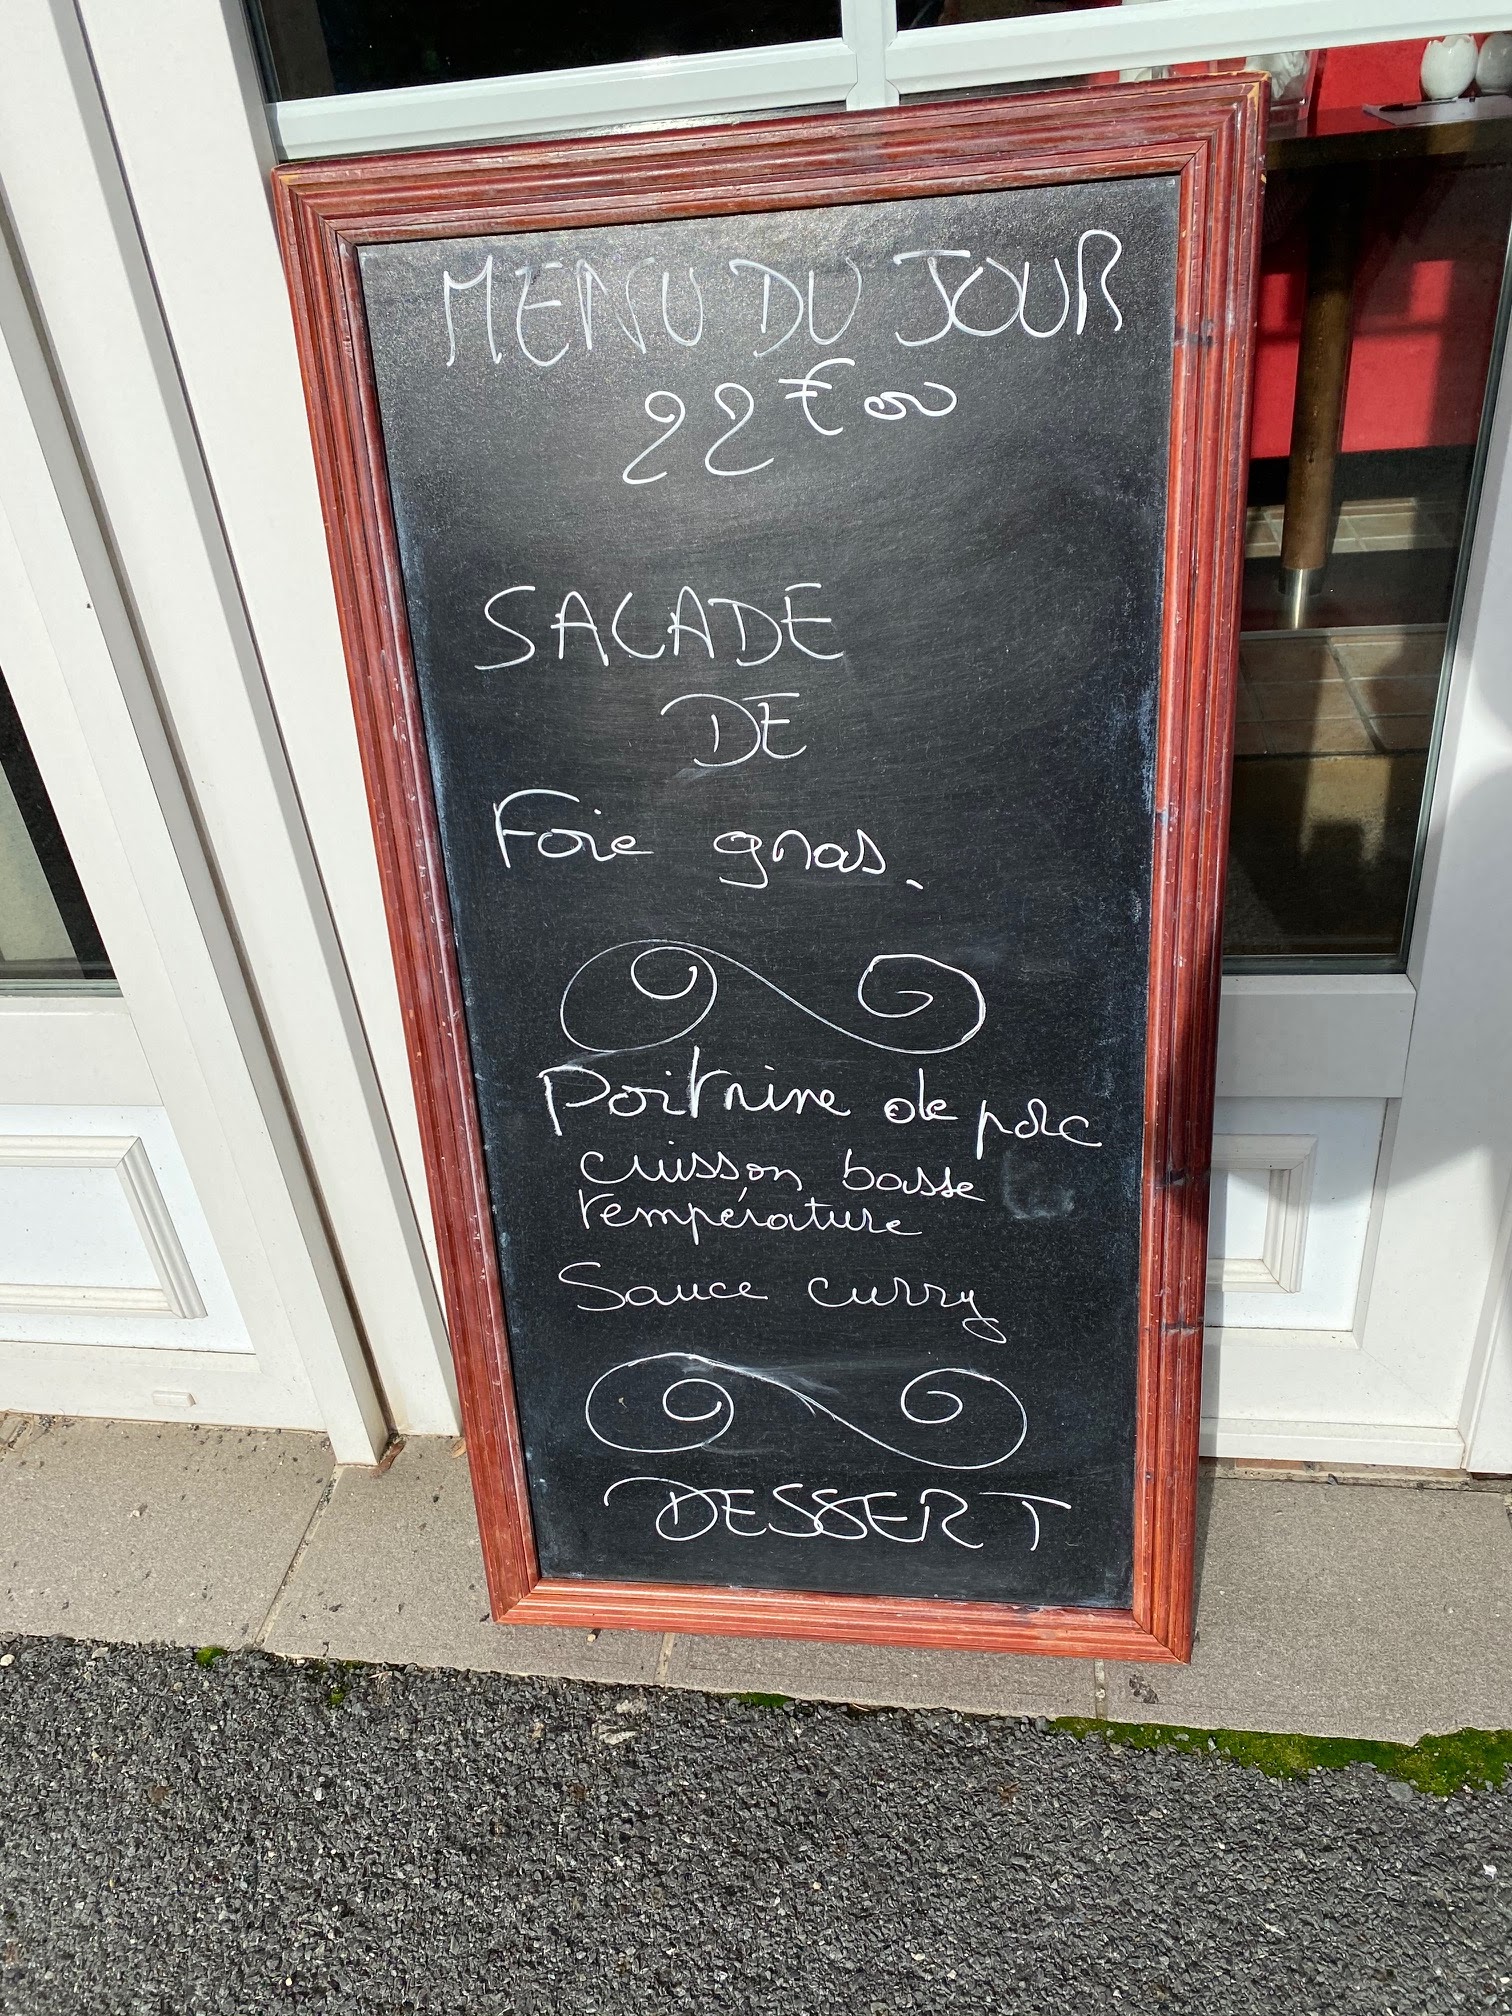 MENU DU JOUR
22€00
SALADE
DE
Foie gras.
Poitrine de porc
cuisson basse
température
Sauce curry
DESSERT